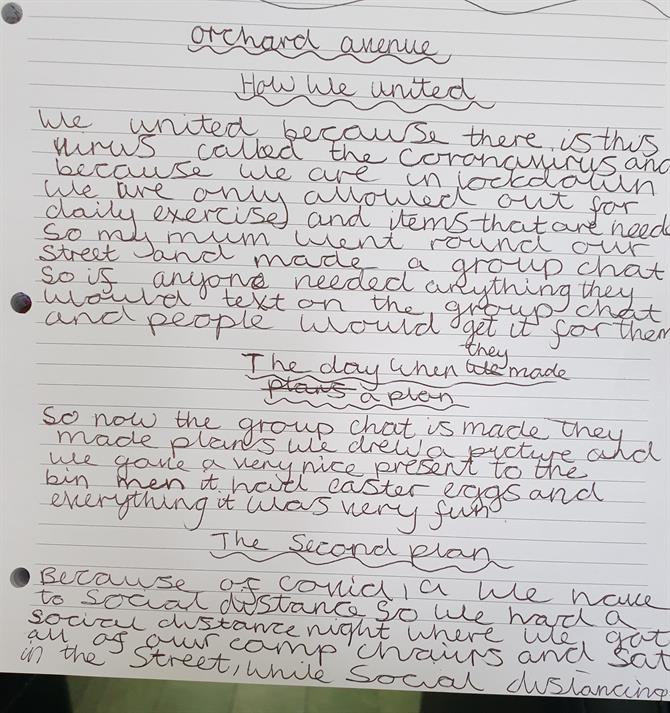 orchard avenue
How We united
We united because there is this
virus called the coronavirus and
because we are in lockdown
We are only allowed out for
daily exercise) and items that are need
So my mum went round our
street and made a group chat
So is anyone needed anything they
would text on the group chat
and people would get it for them
they
The day when we made
plans a plan
So now the group chat is made they
made plans we drew a picture and
we gave a very nice present to the
bin men it had easter eggs and
everything it was very fun
The Second plan
Because of covid 19 We have
to social distance so we had a
social distance night where we got
all of our camp chairs and sat
in the street, while social distancing